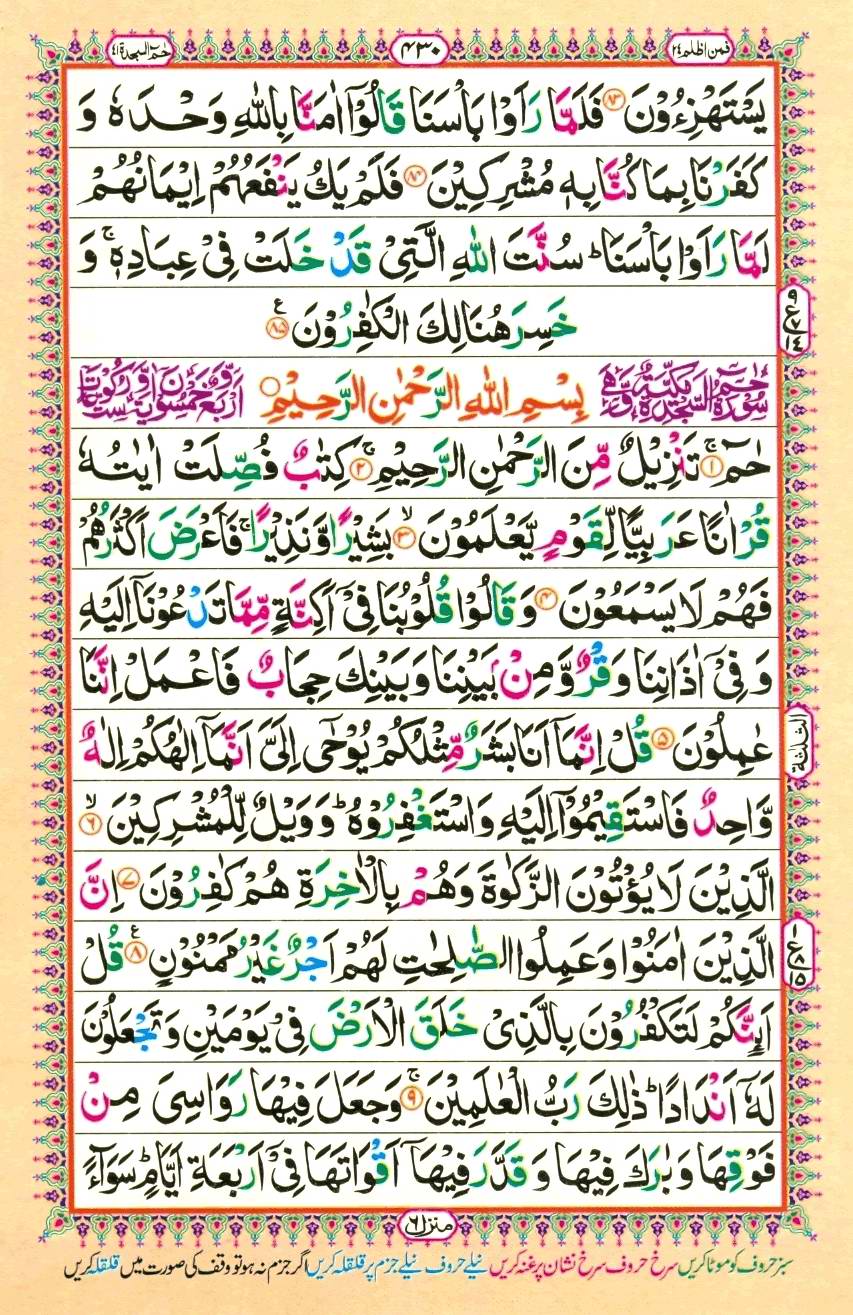 فمن اظلم ۲۴
۴۳۰
حٰمٓ السجدة ۴۱
يَسْتَهْزِءُوْنَ ﴿۸۳﴾ فَلَمَّا رَاَوْا بَاْسَنَا قَالُوْۤا اٰمَنَّا بِاللّٰهِ وَحْدَهٗ وَ
كَفَرْنَا بِمَا كُنَّا بِهٖ مُشْرِكِيْنَ ﴿۸۴﴾ فَلَمْ يَكُ يَنْفَعُهُمْ اِيْمَانُهُمْ
لَمَّا رَاَوْا بَاْسَنَا ؕ سُنَّتَ اللّٰهِ الَّتِيْ قَدْ خَلَتْ فِيْ عِبَادِهٖ ۚ وَ
خَسِرَ هُنَالِكَ الْكٰفِرُوْنَ ﴿۸۵﴾ ع
۹ ع ۱۴
سُوْرَةُ حٰمٓ السَّجْدَةِ مَكِّيَّةٌ وَّهِيَ
بِسْمِ اللّٰهِ الرَّحْمٰنِ الرَّحِيْمِ
اَرْبَعٌ وَّخَمْسُوْنَ اٰيَةً وَّسِتُّ رُكُوْعَاتٍ
حٰمٓ ﴿۱﴾ ۚ تَنْزِيْلٌ مِّنَ الرَّحْمٰنِ الرَّحِيْمِ ﴿۲﴾ ۚ كِتٰبٌ فُصِّلَتْ اٰيٰتُهٗ
قُرْاٰنًا عَرَبِيًّا لِّقَوْمٍ يَّعْلَمُوْنَ ﴿۳﴾ ۙ بَشِيْرًا وَّنَذِيْرًا ۚ فَاَعْرَضَ اَكْثَرُهُمْ
فَهُمْ لَا يَسْمَعُوْنَ ﴿۴﴾ وَقَالُوْا قُلُوْبُنَا فِيْۤ اَكِنَّةٍ مِّمَّا تَدْعُوْنَاۤ اِلَيْهِ
وَفِيْۤ اٰذَانِنَا وَقْرٌ وَّمِنْۢ بَيْنِنَا وَبَيْنِكَ حِجَابٌ فَاعْمَلْ اِنَّنَا
عٰمِلُوْنَ ﴿۵﴾ قُلْ اِنَّمَاۤ اَنَا بَشَرٌ مِّثْلُكُمْ يُوْحٰۤى اِلَيَّ اَنَّمَاۤ اِلٰهُكُمْ اِلٰهٌ
الثلثة
وَّاحِدٌ فَاسْتَقِيْمُوْۤا اِلَيْهِ وَاسْتَغْفِرُوْهُ ؕ وَوَيْلٌ لِّلْمُشْرِكِيْنَ ﴿۶﴾ ۙ
الَّذِيْنَ لَا يُؤْتُوْنَ الزَّكٰوةَ وَهُمْ بِالْاٰخِرَةِ هُمْ كٰفِرُوْنَ ﴿۷﴾ اِنَّ
الَّذِيْنَ اٰمَنُوْا وَعَمِلُوا الصّٰلِحٰتِ لَهُمْ اَجْرٌ غَيْرُ مَمْنُوْنٍ ﴿۸﴾ ع قُلْ
۱ ع ۸ ۱۵
اَىِٕنَّكُمْ لَتَكْفُرُوْنَ بِالَّذِيْ خَلَقَ الْاَرْضَ فِيْ يَوْمَيْنِ وَتَجْعَلُوْنَ
لَهٗۤ اَنْدَادًا ؕ ذٰلِكَ رَبُّ الْعٰلَمِيْنَ ﴿۹﴾ ۚ وَجَعَلَ فِيْهَا رَوَاسِيَ مِنْ
فَوْقِهَا وَبٰرَكَ فِيْهَا وَقَدَّرَ فِيْهَاۤ اَقْوَاتَهَا فِيْۤ اَرْبَعَةِ اَيَّامٍ ؕ سَوَآءً
منزل ۶
سبز حروف کو موٹا کریں سرخ حروف سرخ نشان پر غنہ کریں نیلے حروف نیلے جزم پر قلقلہ کریں اگر جزم نہ ہو تو وقف کی صورت میں قلقلہ کریں